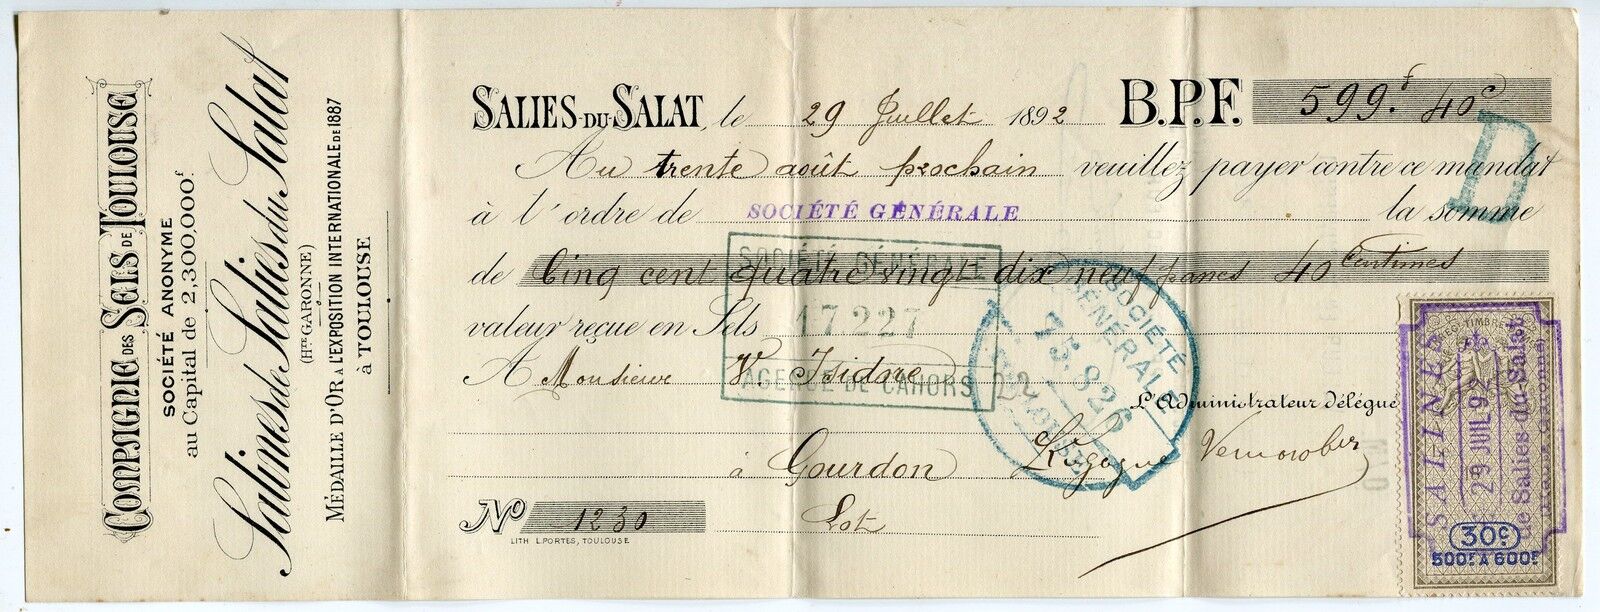 COMPAGNIE DES SELS DE TOULOUSE
SOCIÉTÉ ANONYME
au Capital de 2,300,000f.
Salines de Salies du Salat
(Hte GARONNE)
MÉDAILLE D'OR A L'EXPOSITION INTERNATIONALE DE 1887
à TOULOUSE
SALIES-DU-SALAT, le 29 Juillet 1892 B.P.F. 599.f 40c
D
Au trente août prochain veuillez payer contre ce mandat
à l'ordre de SOCIÉTÉ GÉNÉRALE la somme
de Cinq cent quatre vingt dix neuf francs 40 Centimes
valeur reçue en Sels
SOCIÉTÉ GÉNÉRALE
17227
AGENCE DE CAHORS
SOCIÉTÉ GÉNÉRALE
75.926
A Monsieur V. Isidore
22
L'Administrateur délégué
à Gourdon
Lot
No 1230
LITH L.PORTES, TOULOUSE
SALINES
29 JUIL 92
de Salies-du-Salat
Haute Garonne
30c
500F A 600F